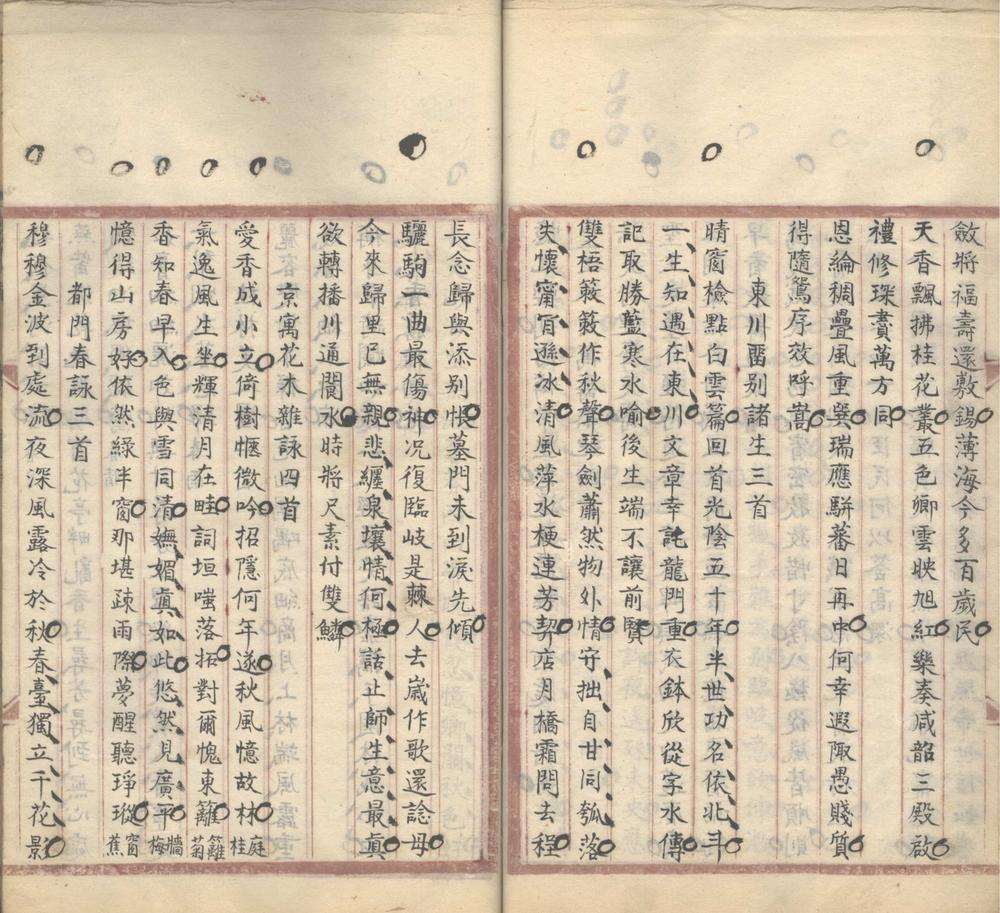 斂將福壽還敷錫薄海今多百歲民
天香飄拂桂花叢五色卿雲映旭紅樂奏咸韶三殿啟
禮修琛賮萬方同
恩綸稠疊風重巽瑞應駢蕃日再中何幸遐陬愚賤質
得隨鴛序效呼嵩
東川畱别諸生三首
晴窗檢點白雲篇回首光陰五十年半世功名依北斗
一生知遇在東川文章幸託龍門重衣鉢欣從字水傳
記取勝藍寒水喻後生端不讓前賢
雙梧簌簌作秋聲琴劍蕭然物外情守拙自甘同瓠落
失懷甯肎遜冰清風萍水梗連芳契店月橋霜問去程
長念歸與添别悵墓門未到淚先傾
驪駒一曲最傷神况復臨岐是棘人去歲作歌還諗母
今來歸里已無親悲纏泉壤情何極話止師生意最真
欲轉播川通閬水時將尺素付雙鱗
京寓花木雜詠四首
愛香成小立倚樹愜微吟招隱何年遂秋風憶故林庭桂
氣逸風生坐輝清月在畦詞垣嗤落拓對爾愧東籬籬菊
香知春早入色與雪同清嫵媚真如此悠然見廣平牆梅
憶得山房好依然綠半窗那堪疎雨際夢醒聽琤瑽窗蕉
都門春詠三首
穆穆金波到處流夜深風露冷於秋春臺獨立千花影